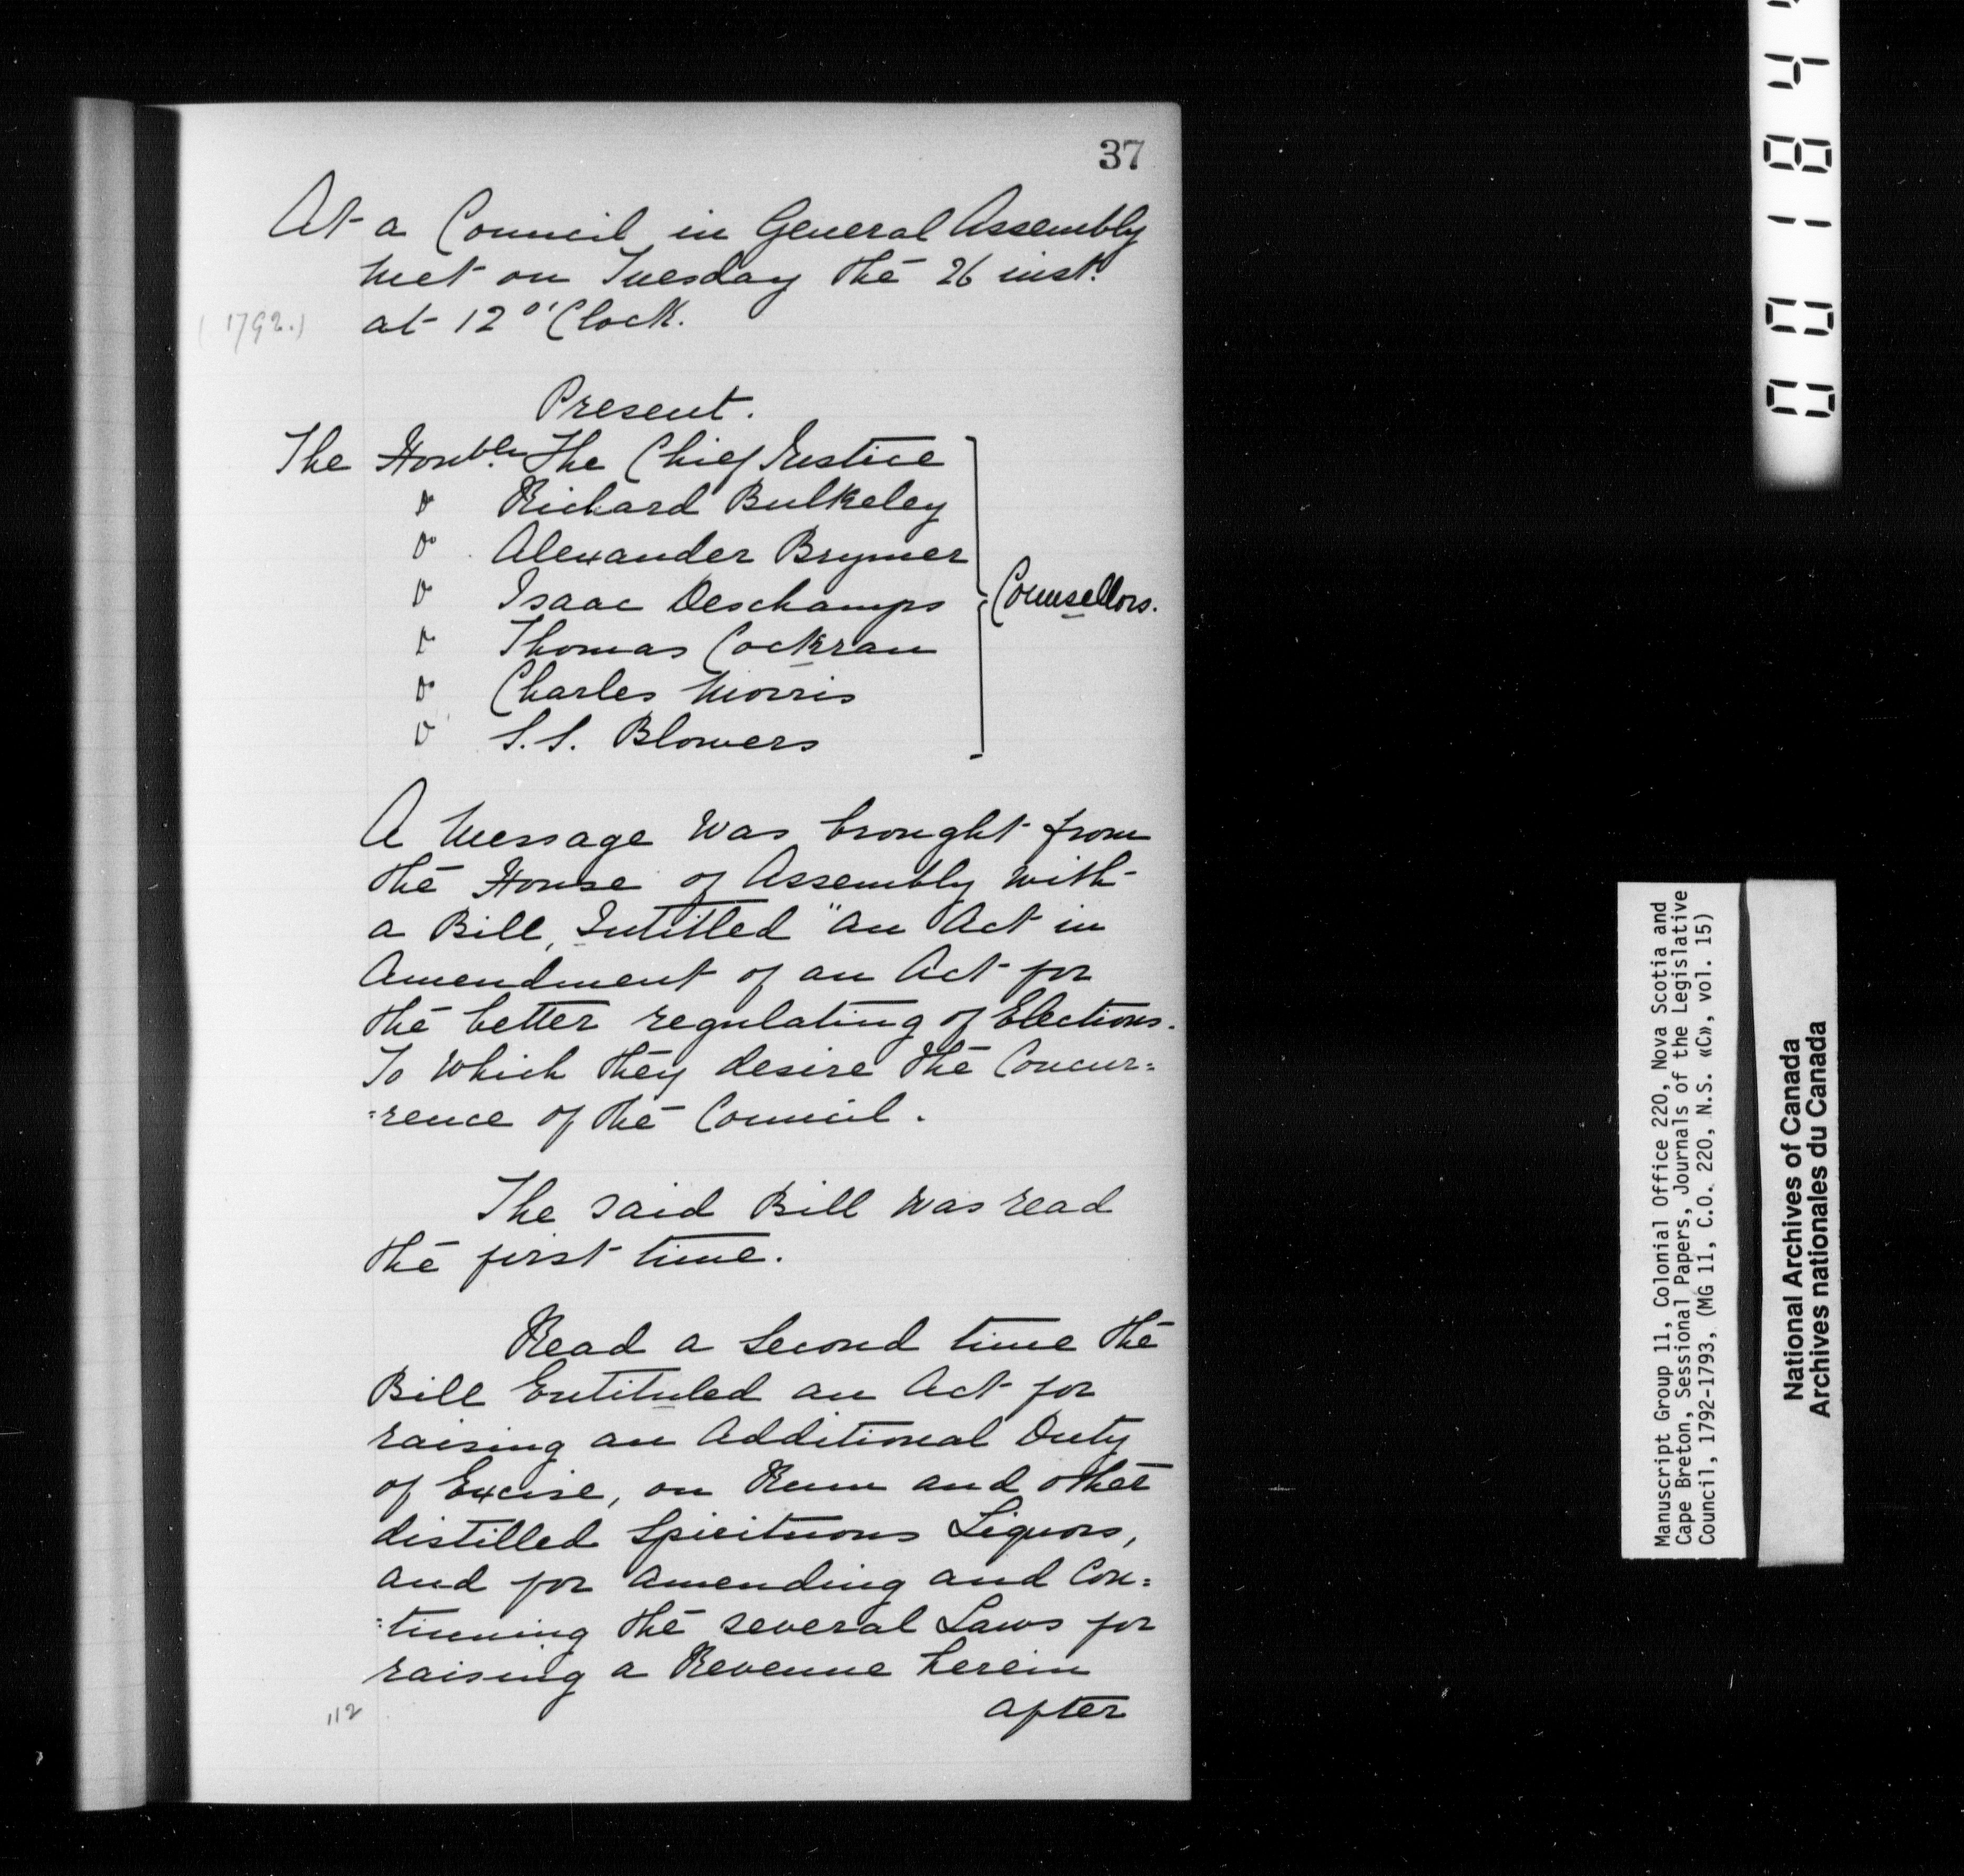 37
At a Council in General Assembly
met on Tuesday the 26 inst.
(1792.) at 12 o'Clock.
Present.
The Honble. The Chief Justice
Do Richard Bulkeley
Do Alexander Brymer
Do Isaac Deschamps
Do Thomas Cockran
Do Charles Morris
Do S.S. Blowers
Counsellors.
A Message was brought from
the House of Assembly with
a Bill, Intitled "an Act in
Amendment of an Act for
the better regulating of Elections.
To which they desire the Concur=
=rence of the Council.
The said Bill was read
the first time.
Read a Second time the
Bill Entituled an Act for
raising an Additional Duty
of Excise, on Rum and other
distilled Spirituous Liquors,
and for amending and Con=
=tinuing the several Laws for
raising a Revenue herein
after
112
00184
Manuscript Group 11, Colonial Office 220, Nova Scotia and
Cape Breton, Sessional Papers, Journals of the Legislative
Council, 1792-1793, (MG 11, C.O. 220, N.S. «C», vol. 15)
National Archives of Canada
Archives nationales du Canada